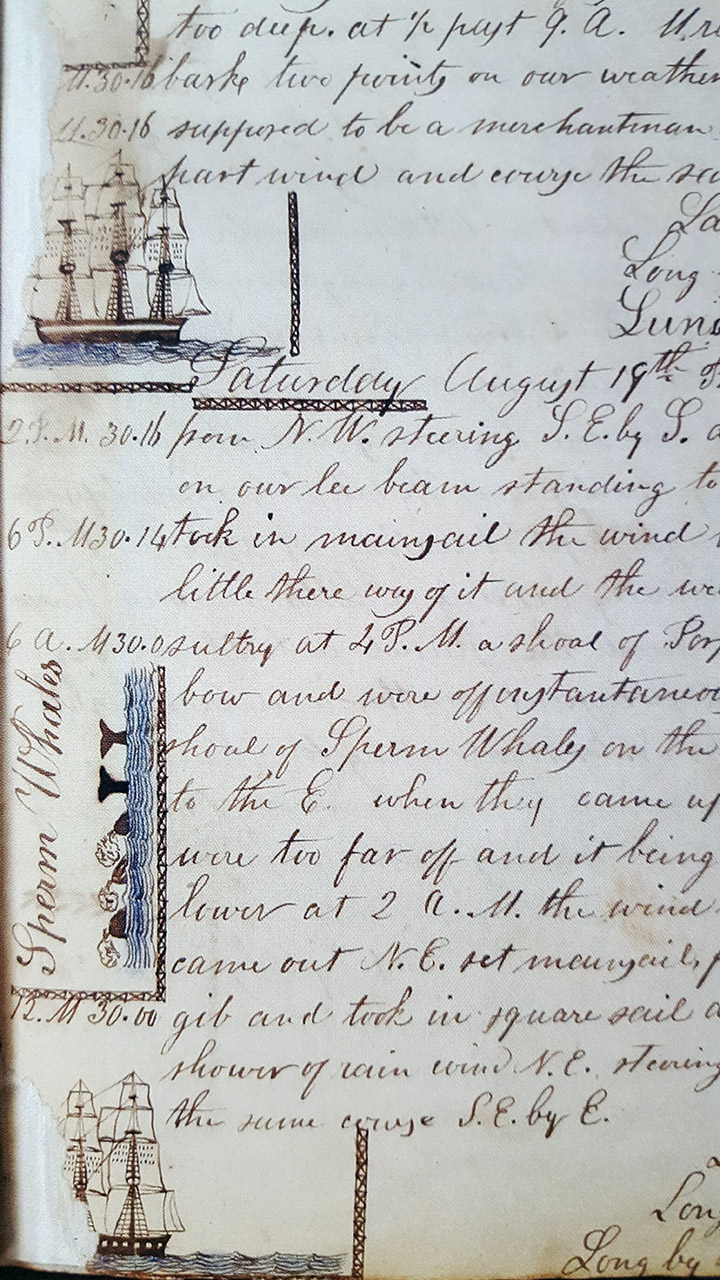 too deep. at ½ past 9. A. M.
11.30.16 bark two points on our weather
11.30.16 supposed to be a merchantman
part wind and course the sa
La
Long
Luna
Saturday August 19th
2 P. M. 30.16 from N. W. steering S. E. by S. a
on our lee beam standing to
6 P. M 30.14 took in mainsail the wind
little there way of it and the we
6 a. M 30.0 sultry at 4 P. M. a shoal of Porp
bow and were off instantaneou
shoal of Sperm Whales on the
to the E. when they came up
were too far off and it being
lower at 2 A. M. the wind
came out N. E. set mainsail,
12. M 30.00 gib and took in square sail a
shower of rain wind N. E. steering
the same course S. E. by E.
Long
Long by
Sperm Whales